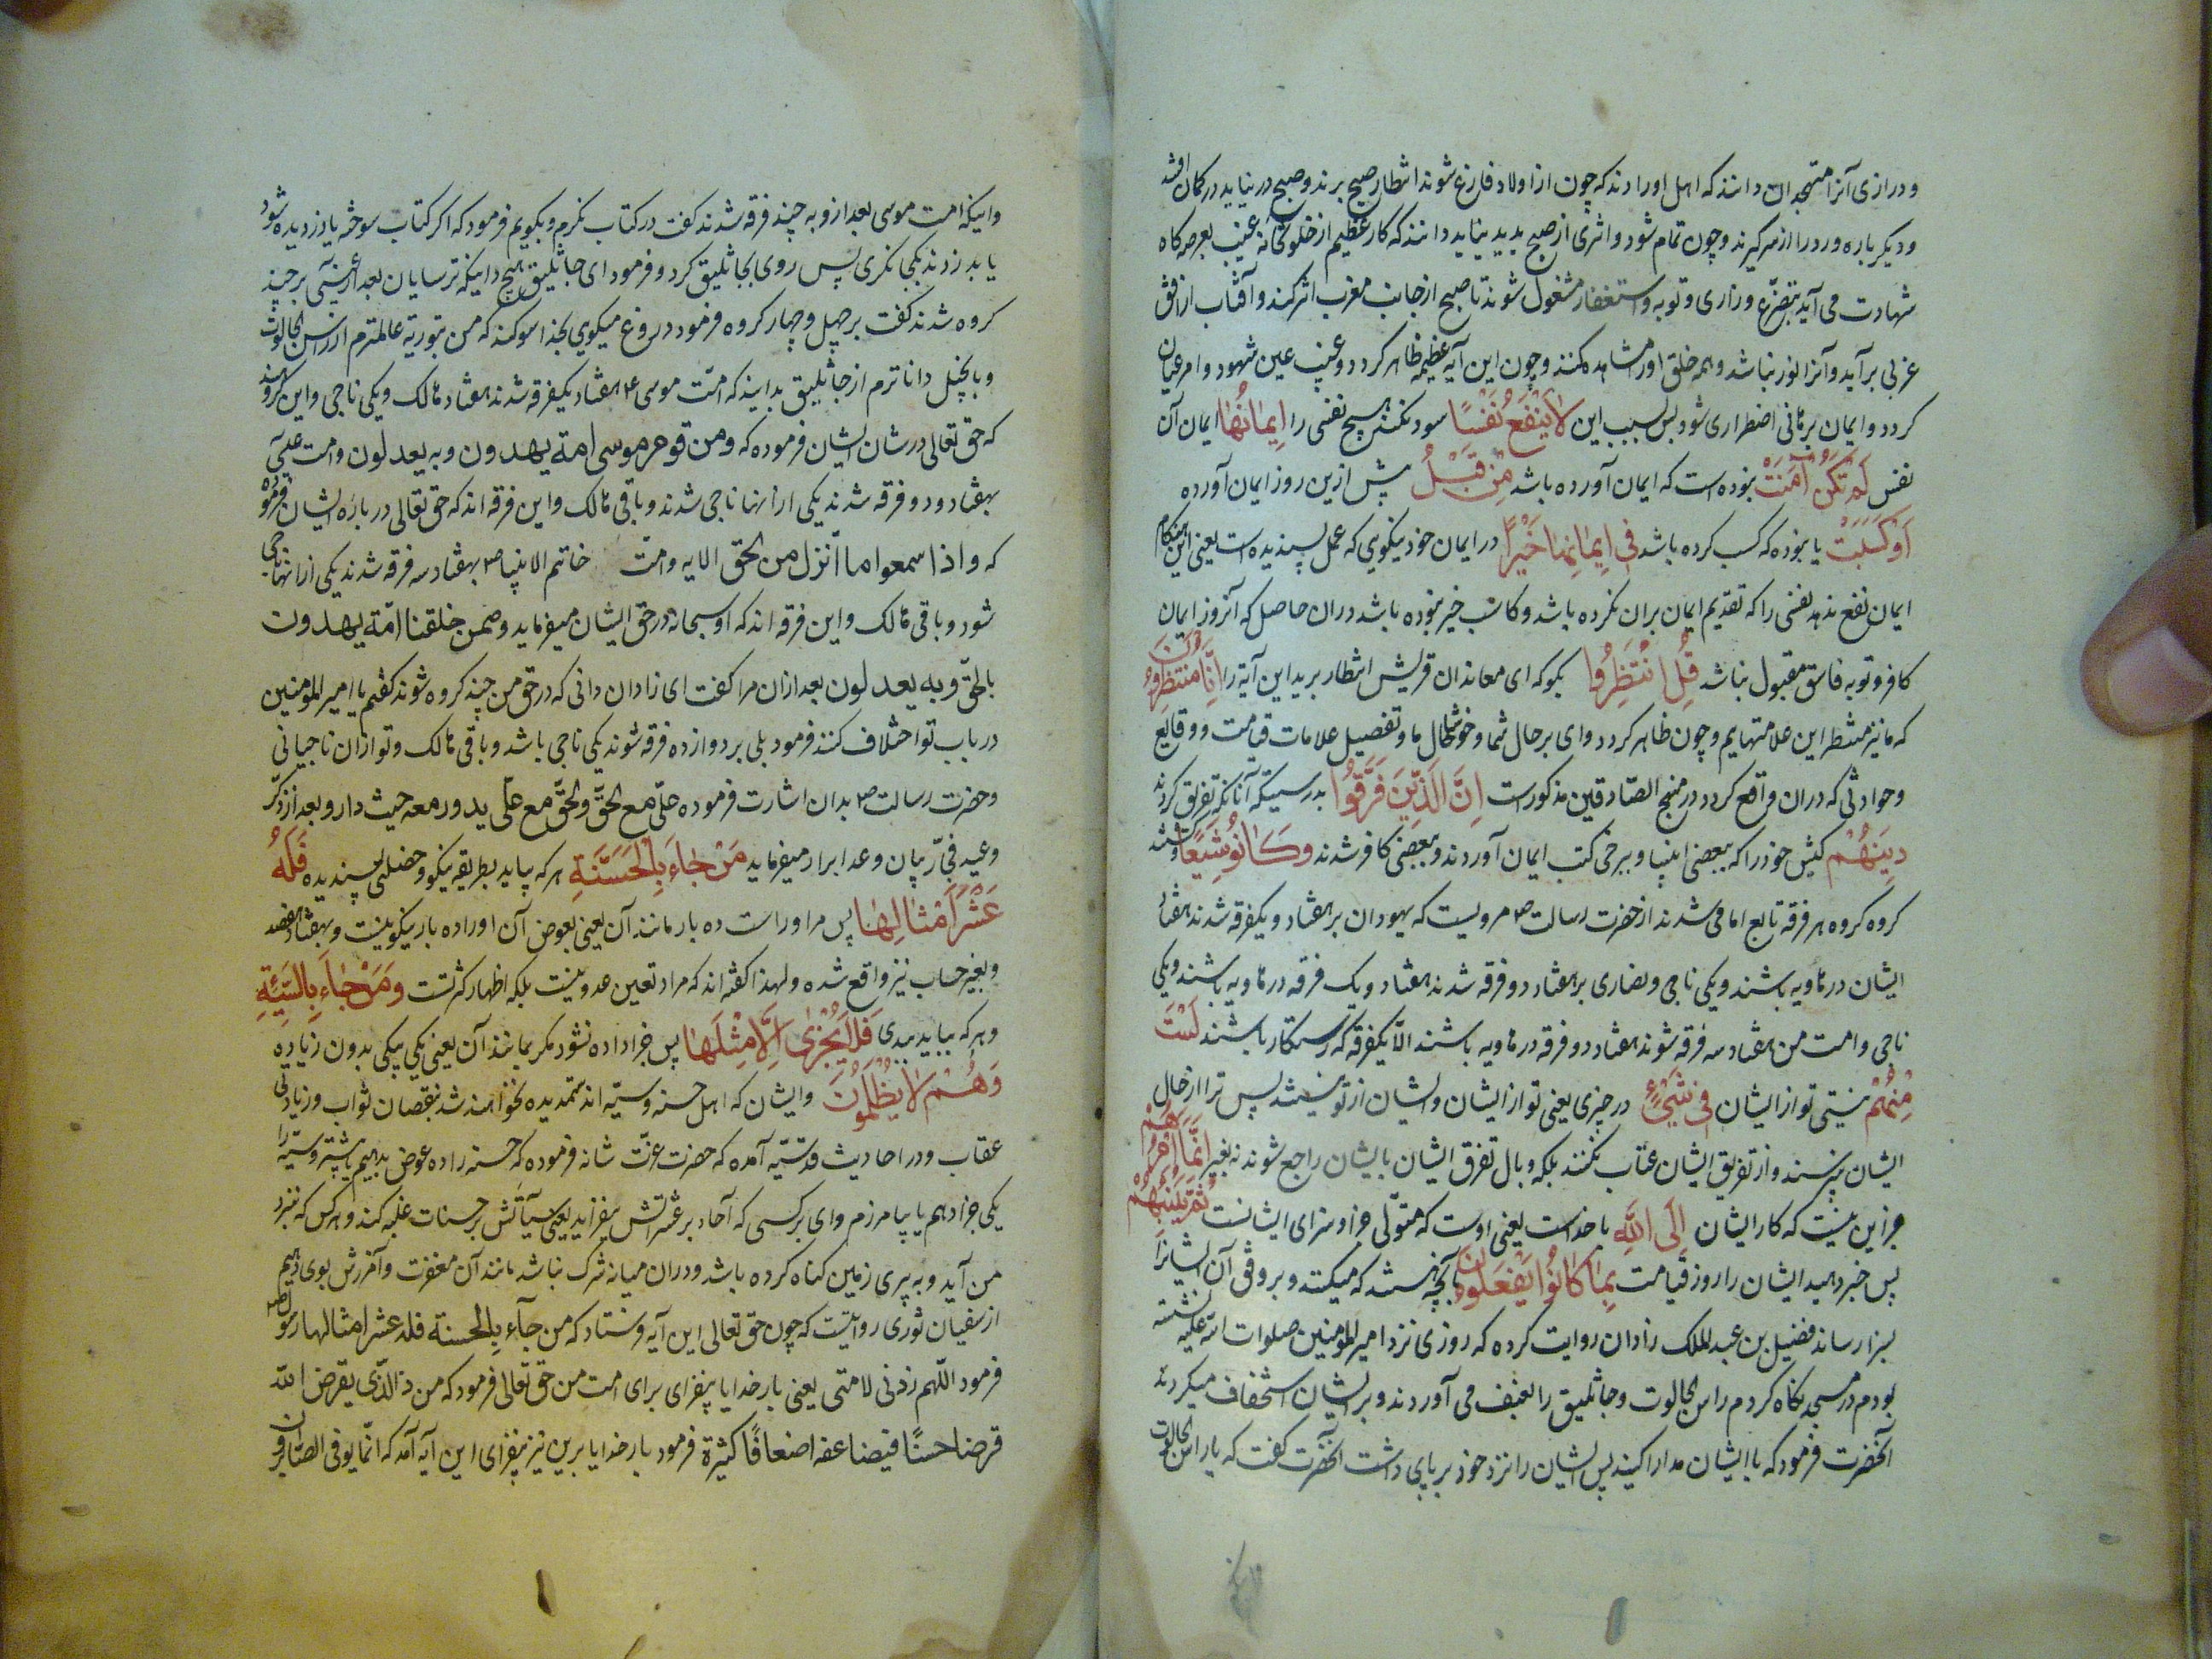 ودرازی آنرا متهجدان دانند که اهل اورادند که چون از اولاد فارغ شوند انتظار صبح برند و صبح در نیاید در کمان افتند
ودیکر باره ورد را از سر کیرند وچون تمام شود و اثری از صبح پدید نیاید دانند که کار عظیم از خلوتخانه غیب بعرصه کاه
شهادت می آید بتضرع وزاری و توبه و استغفار مشغول شوند تا صبح از جانب مغرب اثر کند و آفتاب از افق
غربی برآید و آنرا نور نباشد و همه خلق او را مشاهده کنند وچون این آیه عظیمه ظاهر کردد و غیب عین شهود و امر عیان
کردد و ایمان برهانی اضطراری شود بس بسبب این لا ینفع نفسا سود نکند هیچ نفسی را ایمانها ایمان آن
نفس لم تکن آمنت نبوده است که ایمان آورده باشد من قبل پیش ازین روز ایمان آورده
او کسبت یا نبوده که کسب کرده باشد فی ایمانها خیرا در ایمان خود نیکویی که عمل پسندیده است یعنی این هنکام
ایمان نفع ندهد نفسی را که تقدیم ایمان بران نکرده باشد و کاسب خیر نبوده باشد دران حاصل که آنروز ایمان
کافر و توبه فاسق مقبول نباشد قل انتظروا بکو که ای معاندان قریش انتظار برید این آیه را انا منتظرون
که ما نیز منتظر این علامتهایم وچون ظاهر کردد وای بر حال شما و خوشا حال ما و تفصیل علامات قیامت و وقایع
و حوادثی که دران واقع کردد در منهج الصادقین مذکور است ان الذین فرقوا بدرستیکه آنانکه تفرق کردند
دینهم کیش خود را که ببعضی انبیا و ببرخی کتب ایمان آوردند و ببعضی کافر شدند وکانوا شیعا و شدند
کروه کروه هر فرقه تابع امامی شدند از حضرت رسالت ص مرویست که یهودان بر هفتاد و یکفرقه شدند هفتاد
ایشان در هاویه باشند و یکی ناجی و نصاری بر هفتاد و دو فرقه شدند هفتاد و یک فرقه در هاویه باشند و یکی
ناجی و امت من هفتاد سه فرقه شوند هفتاد دو فرقه در هاویه باشند الا یکفرقه که رستکار باشند لست
منهم نیستی تو از ایشان فی شیء در چیزی یعنی تو از ایشان و ایشان از تو نیستند پس ترا از حال
ایشان نپرسند و از تفریق ایشان عتاب نکنند بلکه وبال تفرق ایشان بایشان راجع شوند نه بغیر انما امرهم
جز این نیست که کار ایشان الی الله با خداست یعنی اوست که متولی جزا و سزای ایشانست ثم ینبئهم
پس خبر دهد ایشان را روز قیامت بما کانوا یفعلون بآنچه هستند که میکنند و بر وفق آن ایشانرا
بسزا رساند فضیل بن عبد الملک زادان روایت کرده که روزی نزد امیر المومنین صلوات الله علیه نشسته
بودم در مسجد نکاه کردم راس الجالوت و جاثلیق را بعنف می آوردند و بر ایشان استخفاف میکردند
آنحضرت فرمود که با ایشان مدارا کنید پس ایشان را نزد خود بر پای داشت آنحضرت کفت که یا راس الجالوت
وانیکه امت موسی بعد ازو به چند فرقه شدند کفت در کتاب نکرم و بکویم فرمود که اکر کتاب سوخته یا دزدیده شود
یا بدزدند بکجا نکری پس روی بجاثلیق کرد و فرمود ای جاثلیق هیچ دانیکه ترسایان بعد از عیسی بر چند
کروه شدند کفت بر چهل و چهار کروه فرمود دروغ میکوی بخدا سوکند که من بتوریة عالمترم از راس الجالوت
و بانجیل داناترم از جاثلیق بدانید که امت موسی ع هفتاد یکفرقه شدند هفتاد هالک و یکی ناجی و این کروهند
که حق تعالی در شان ایشان فرموده که ومن قوم موسی امة یهدون وبه یعدلون و امت عیسی
بهفتاد و دو فرقه شدند یکی ازانها ناجی شدند و باقی هالک و این فرقه اند که حق تعالی درباره ایشان فرموده
که واذا سمعوا ما انزل من الحق الایه و امت خاتم الانبیا ص بهفتاد سه فرقه شدند یکی ازانها ناجی
شود و باقی هالک و این فرقه اند که او سبحانه در حق ایشان میفرماید وممن خلقنا امة یهدون
بالحق وبه یعدلون بعد ازان مرا کفت ای زادان دانی که در حق من چند کروه شوند کفتم یا امیر المومنین
در باب تو اختلاف کنند فرمود بلی بر دوازده فرقه شوند یکی ناجی باشد و باقی هالک و تو ازان ناجیانی
و حضرت رسالت ص بدان اشارت فرموده علی مع الحق والحق مع علی یدور معه حیث دار و بعد از ذکر
وعید فجار بیان وعد ابرار میفرماید من جاء بالحسنة هر که بیاید بطریقه نیکو و خصلتی پسندیده فله
عشر امثالها پس مر او راست ده بار مانند آن یعنی بعوض آن او را ده بار نیکوییست و بهفتاد و هفتصد
و بغیر حساب نیز واقع شده و لهذا کفته اند که مراد تعیین عدد نیست بلکه اظهار کثرتست ومن جاء بالسیئة
و هر که بیاید ببدی فلا یجزی الا مثلها پس جزا داده نشود مکر بمانند آن یعنی یکی بیکی بدون زیاده
وهم لا یظلمون و ایشان که اهل حسنه و سیئه اند ستمدیده نخواهند شد بنقصان ثواب و زیادتی
عقاب و در احادیث قدسیه آمده که حضرت عزت شانه فرموده که حسنه را ده عوض بدهیم یا بیشتر و سیئه را
یکی جزا دهم یا بیامرزم وای بر کسی که آحاد بر عشراتش بیفزاید یعنی سیآتش بر حسنات غلبه کند و هر کس که نزد
من آید و به پری زمین کناه کرده باشد و دران میانه شرک نباشد مانند آن مغفرت و آمرزش بوی دهیم
از سفیان ثوری روایتست که چون حق تعالی این آیه فرستاد که من جآء بالحسنة فله عشر امثالها رسول ص
فرمود اللهم زدنی لامتی یعنی بار خدایا بیفزای برای امت من حق تعالی فرمود که من ذا الذی یقرض الله
قرضا حسنا فیضاعفه اضعافا کثیرة فرمود بار خدایا برین نیز بیفزای این آیه آمد که انما یوفی الصابرون